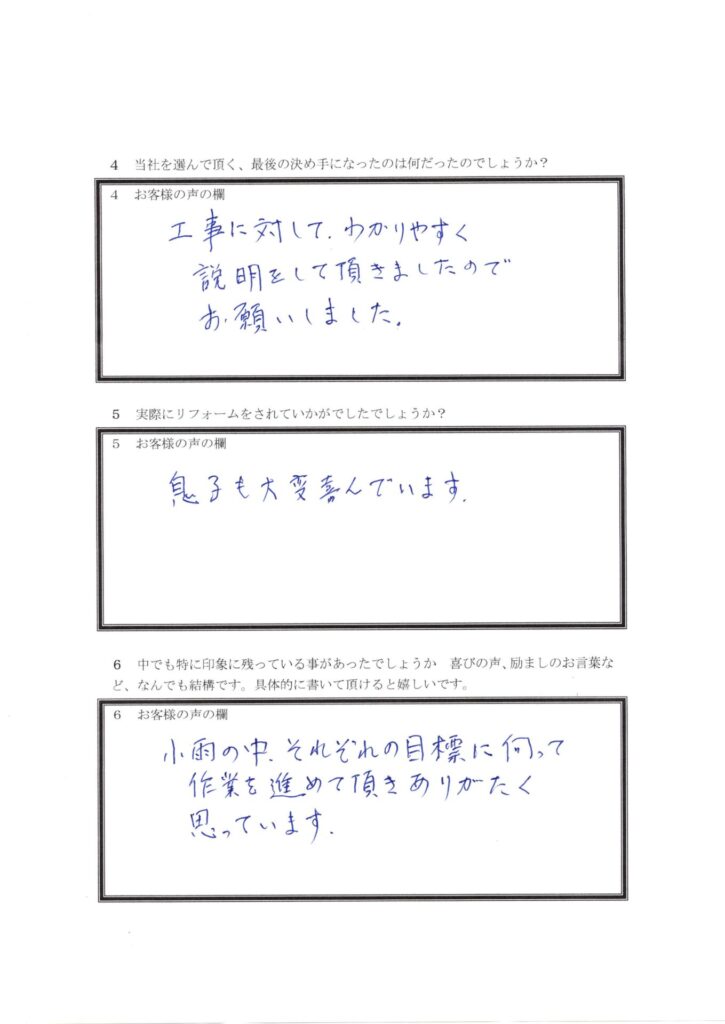 4 当社を選んで頂く、最後の決め手になったのは何だったのでしょうか？
4 お客様の声の欄
工事に対して、わかりやすく
説明をして頂きましたので
お願いしました。
5 実際にリフォームをされていかがでしたでしょうか？
5 お客様の声の欄
息子も大変喜んでいます。
6 中でも特に印象に残っている事があったでしょうか 喜びの声、励ましのお言葉な
ど、なんでも結構です。具体的に書いて頂けると嬉しいです。
6 お客様の声の欄
小雨の中、それぞれの目標に向って
作業を進めて頂きありがたく
思っています。